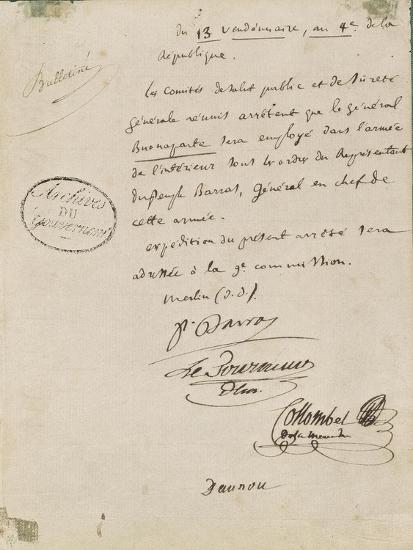 du 13 vendémiaire, an 4e de la
République.
Bulletiné
Les Comités de salut public et de Sûreté
générale réunis arrêtent que le général
Buonaparte sera employé dans l'armée
de l'intérieur sous les ordres du Représentant
du Peuple Barras, Général en chef de
cette armée.
Archives
DU
Gouvernement
expédition du présent arrêté sera
adressée à la 9e commission.
Merlin (d. d.)
P. Barras
Collombel
De la Meurthe
Daunou